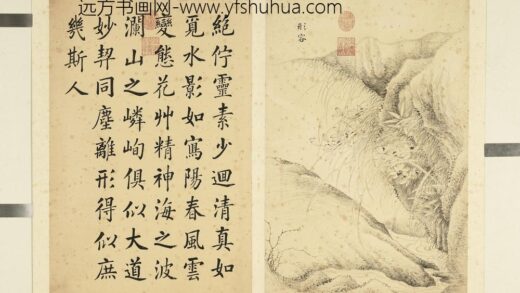 远方书画网-www.yfshuhua.com
形容
絕佇靈素少迴清真如
覓水影如寫陽春風雲
變態花艸精神海之波
瀾山之嶙峋俱似大道
妙契同塵離形得似庶
幾斯人